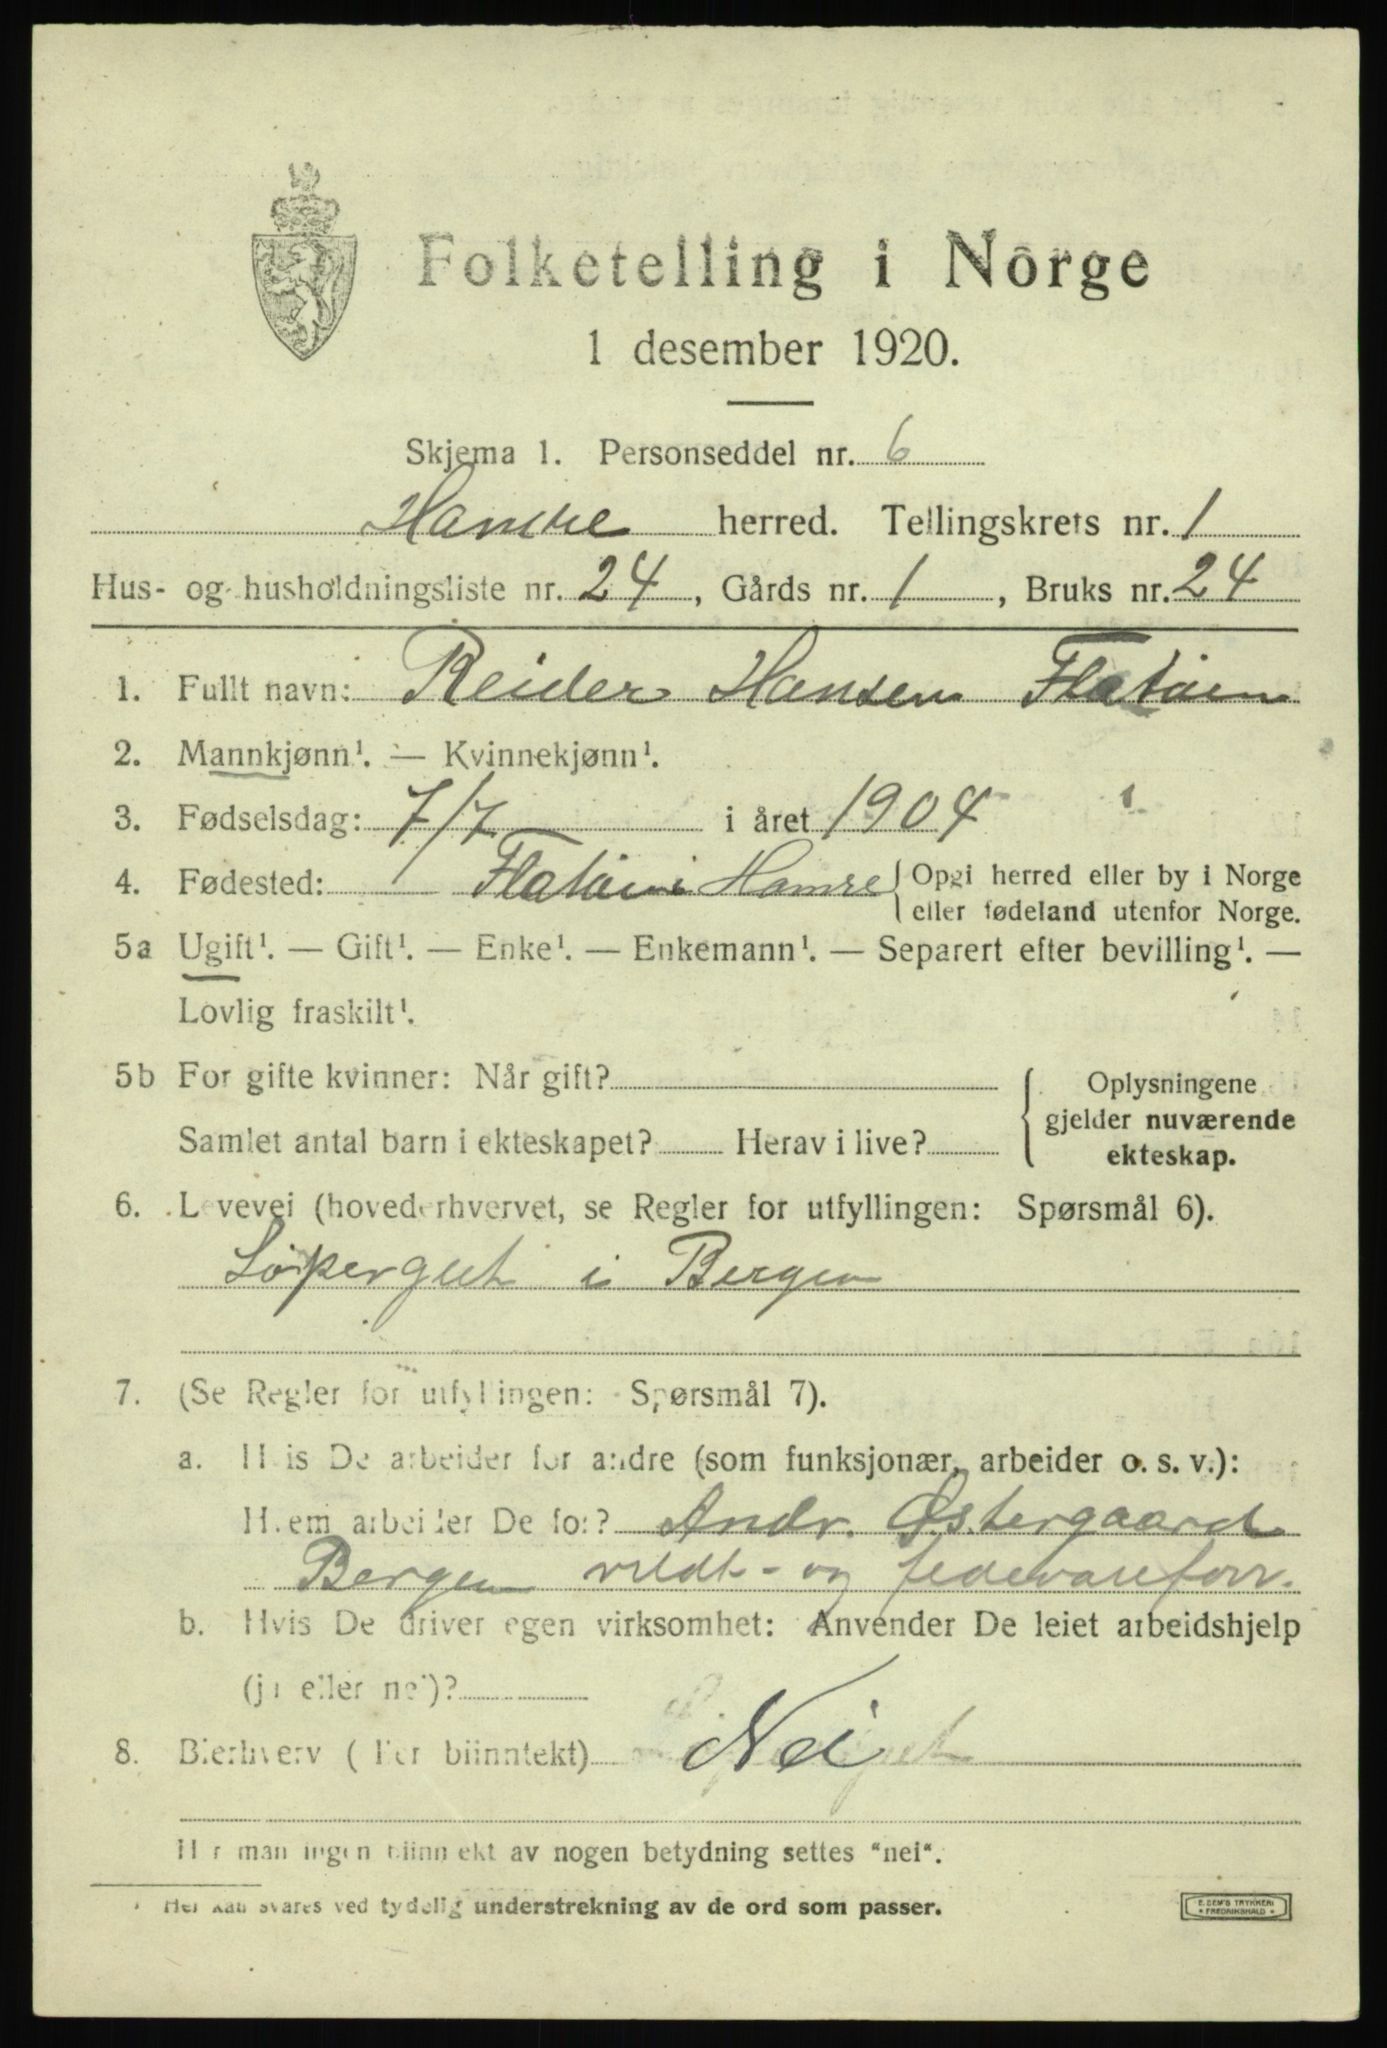 Folketelling i Norge
1 desember 1920.
Skjema 1. Personseddel nr. 6
Hamre herred. Tellingskrets nr. 1
Hus- og husholdningsliste nr. 24, Gårds nr. 1, Bruks nr. 24
1. Fullt navn: Reider Hansen Flatöen
2. Mannkjønn¹. — Kvinnekjønn¹.
3. Fødselsdag: 7/7 i året 1904
4. Fødested: Flatöen i Hamre { Opgi herred eller by i Norge
eller fødeland utenfor Norge.
5a Ugift¹. — Gift¹. — Enke¹. — Enkemann¹. — Separert efter bevilling¹. —
Lovlig fraskilt¹.
5b For gifte kvinner: Når gift?
Samlet antal barn i ekteskapet? Herav i live?
{ Oplysningene
gjelder nuværende
ekteskap.
6. Levevei (hovederhvervet, se Regler for utfyllingen: Spørsmål 6).
Löpergut i Bergen
7. (Se Regler for utfyllingen: Spørsmål 7).
a. Hvis De arbeider for andre (som funksjonær, arbeider o. s. v.):
Hvem arbeider De for? Andr. Østergaard
Bergen vildt- og federvareforr.
b. Hvis De driver egen virksomhet: Anvender De leiet arbeidshjelp
(ja eller nei)?
8. Bierhverv (eller biinntekt) Nei
Har man ingen biinntekt av nogen betydning settes "nei".
¹ Her kan svares ved tydelig understrekning av de ord som passer.
E. SEM'S TRYKKERI
* FREDRIKSHALD *